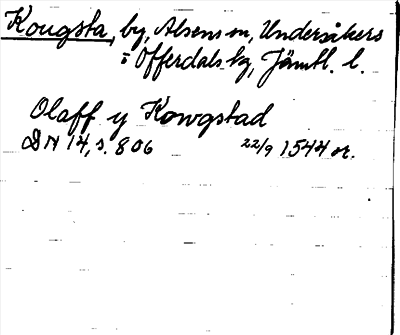 Kougsta, by, Alsens sn, Undersåkers
o Offerdals tg, Jämtl. l.
Olaff y Kowgstad
DN 14, s. 806 22/9 1544 or.